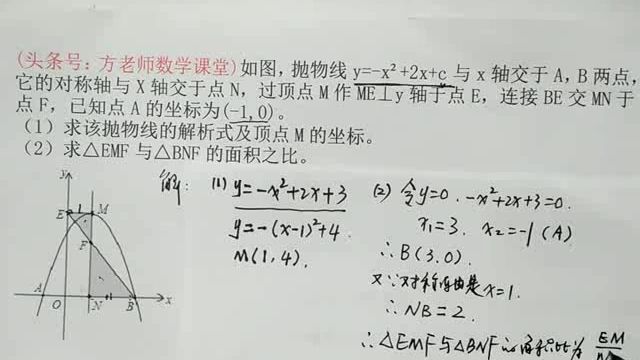 (头条号：方老师数学课堂)如图，抛物线 y=-x²+2x+c 与 x 轴交于 A，B 两点，
它的对称轴与 X 轴交于点 N，过顶点 M 作 ME⊥y 轴于点 E，连接 BE 交 MN 于
点 F，已知点 A 的坐标为(-1,0)。
（1）求该抛物线的解析式及顶点 M 的坐标。
（2）求△EMF 与△BNF 的面积之比。
解：(1) y=-x²+2x+3
y=-(x-1)²+4
M(1,4).
(2) 令y=0. -x²+2x+3=0.
x₁=3. x₂=-1 (A)
∴B(3,0).
又∵对称轴是x=1.
∴NB=2.
∴△EMF与△BNF的面积比为 EM
y
E
1
M
F
A
O
N
B
x